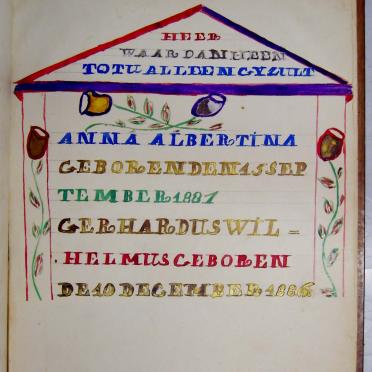 HEER
WAAR DAN HEEN
TOT U ALLEEN GY ZULT
ANNA ALBERTINA
GEBOREN DEN 15 SEP
TEMBER 1881
GERHARDUS WIL =
HELMUS GEBOREN
DE 10 DECEMBER 1886